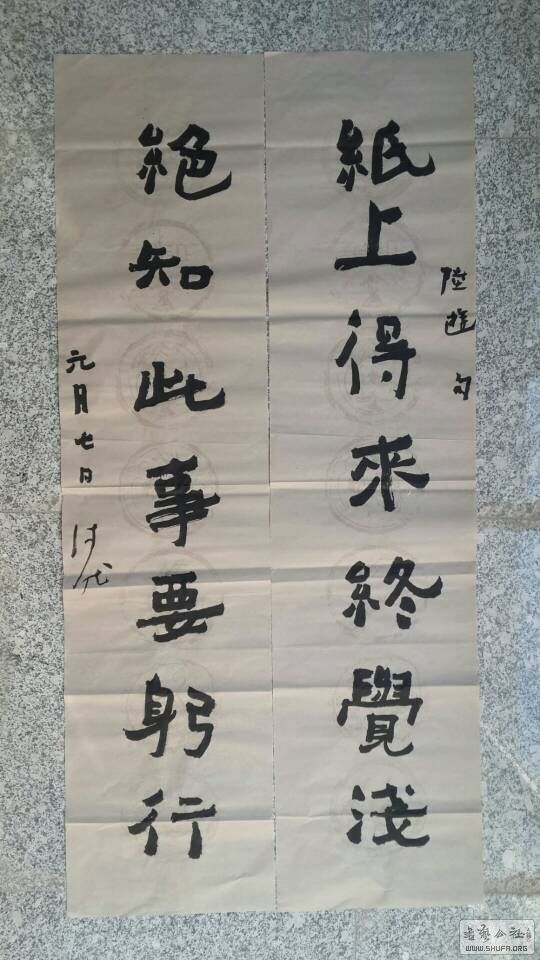 紙上得來終覺淺
陸游句
絕知此事要躬行
元月七日
WWW.SHUFA.ORG